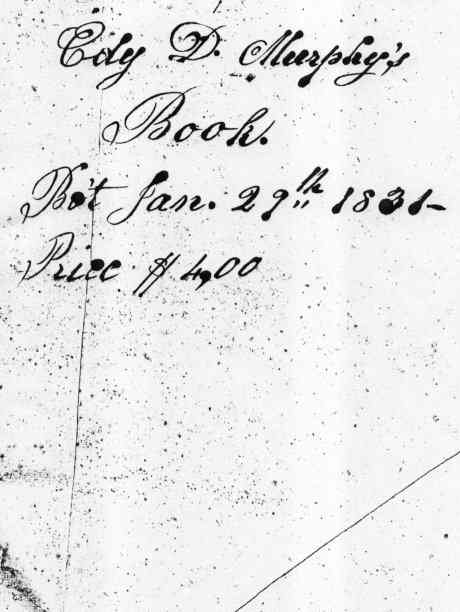 Edy D. Murphy's
Book.
Bo't Jan. 29th 1831-
Price $4,00